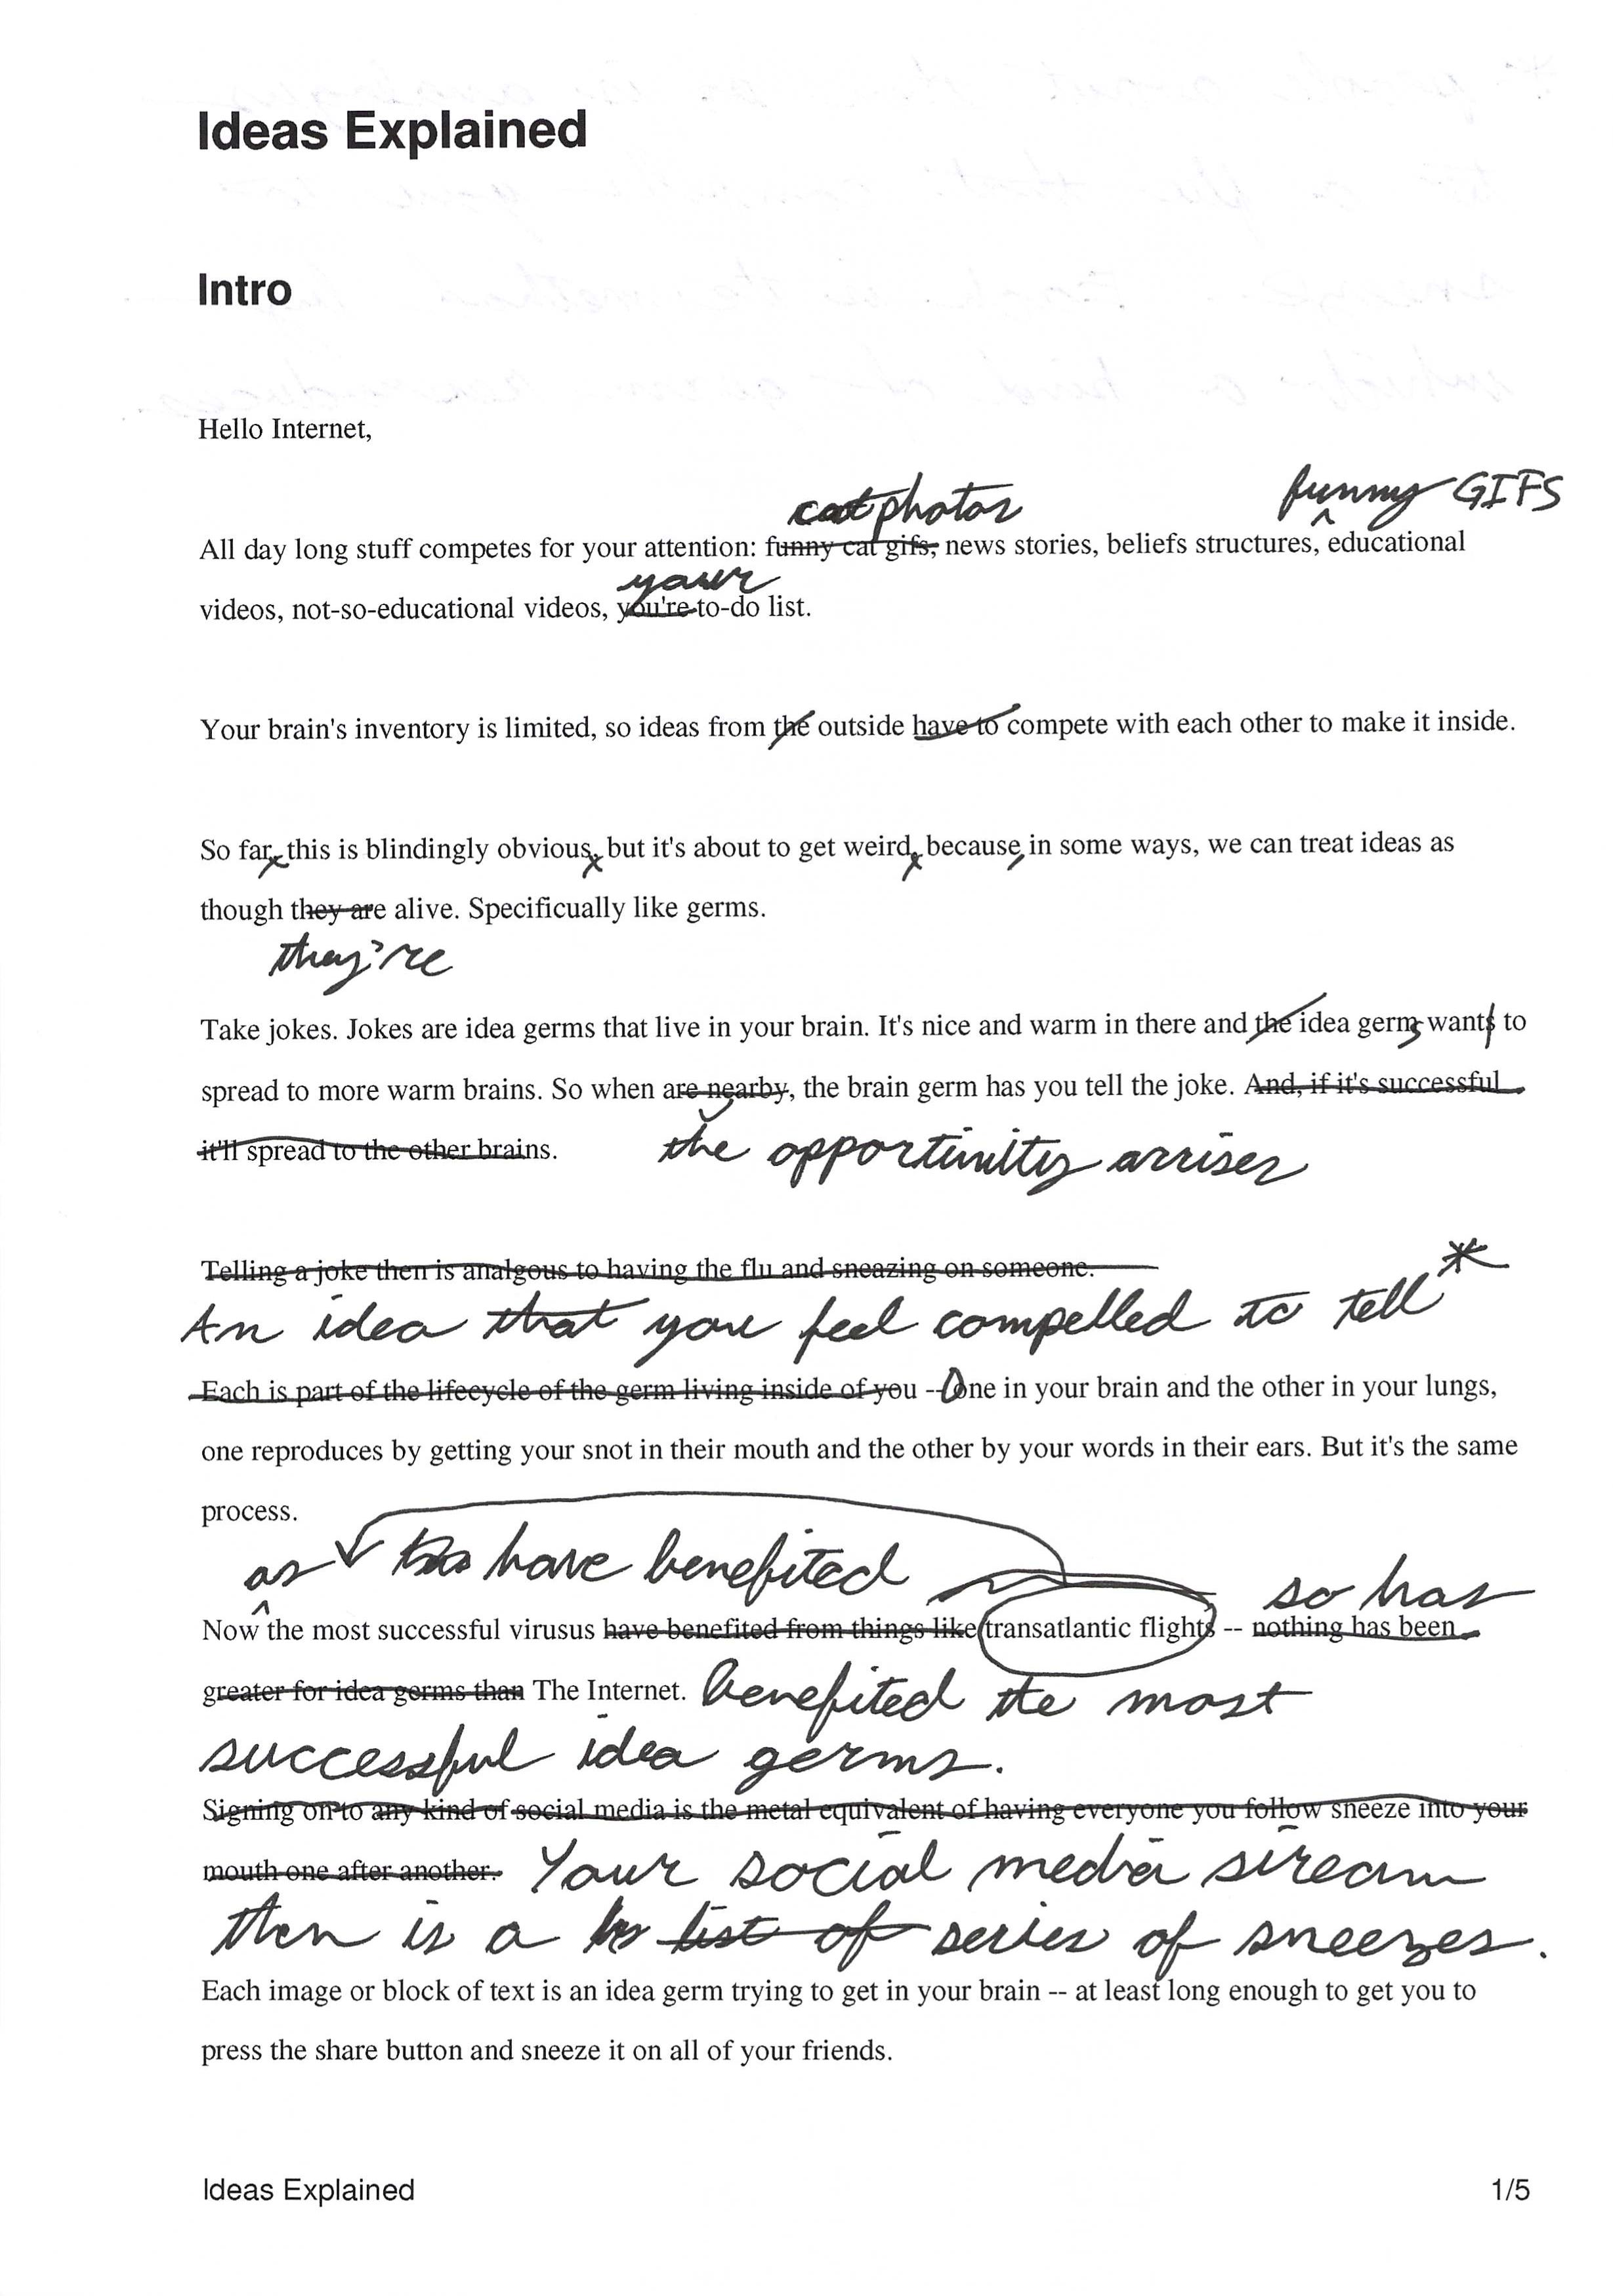 Ideas Explained
Intro
Hello Internet,
cat photos funny GIFS
All day long stuff competes for your attention: funny cat gifs, news stories, beliefs structures, ^ educational
your
videos, not-so-educational videos, you're to-do list.
Your brain's inventory is limited, so ideas from the outside have to compete with each other to make it inside.
So far, this is blindingly obvious, but it's about to get weird, because, in some ways, we can treat ideas as
though they are alive. Specificually like germs.
they're
Take jokes. Jokes are idea germs that live in your brain. It's nice and warm in there and the idea germs wants to
spread to more warm brains. So when are nearby, the brain germ has you tell the joke. And, if it's successful
it'll spread to the other brains. the opportunity arrises
Telling a joke then is analgous to having the flu and sneazing on someone. *
An idea that you feel compelled to tell
Each is part of the lifecycle of the germ living inside of you -- One in your brain and the other in your lungs,
one reproduces by getting your snot in their mouth and the other by your words in their ears. But it's the same
process.
as have benefited so has
Now ^ the most successful virusus have benefited from things like transatlantic flights -- nothing has been
greater for idea germs than The Internet. benefited the most
successful idea germs.
Signing on to any kind of social media is the metal equivalent of having everyone you follow sneeze into your
mouth one after another. Your social media stream
then is a list of series of sneezes.
Each image or block of text is an idea germ trying to get in your brain -- at least long enough to get you to
press the share button and sneeze it on all of your friends.
Ideas Explained 1/5